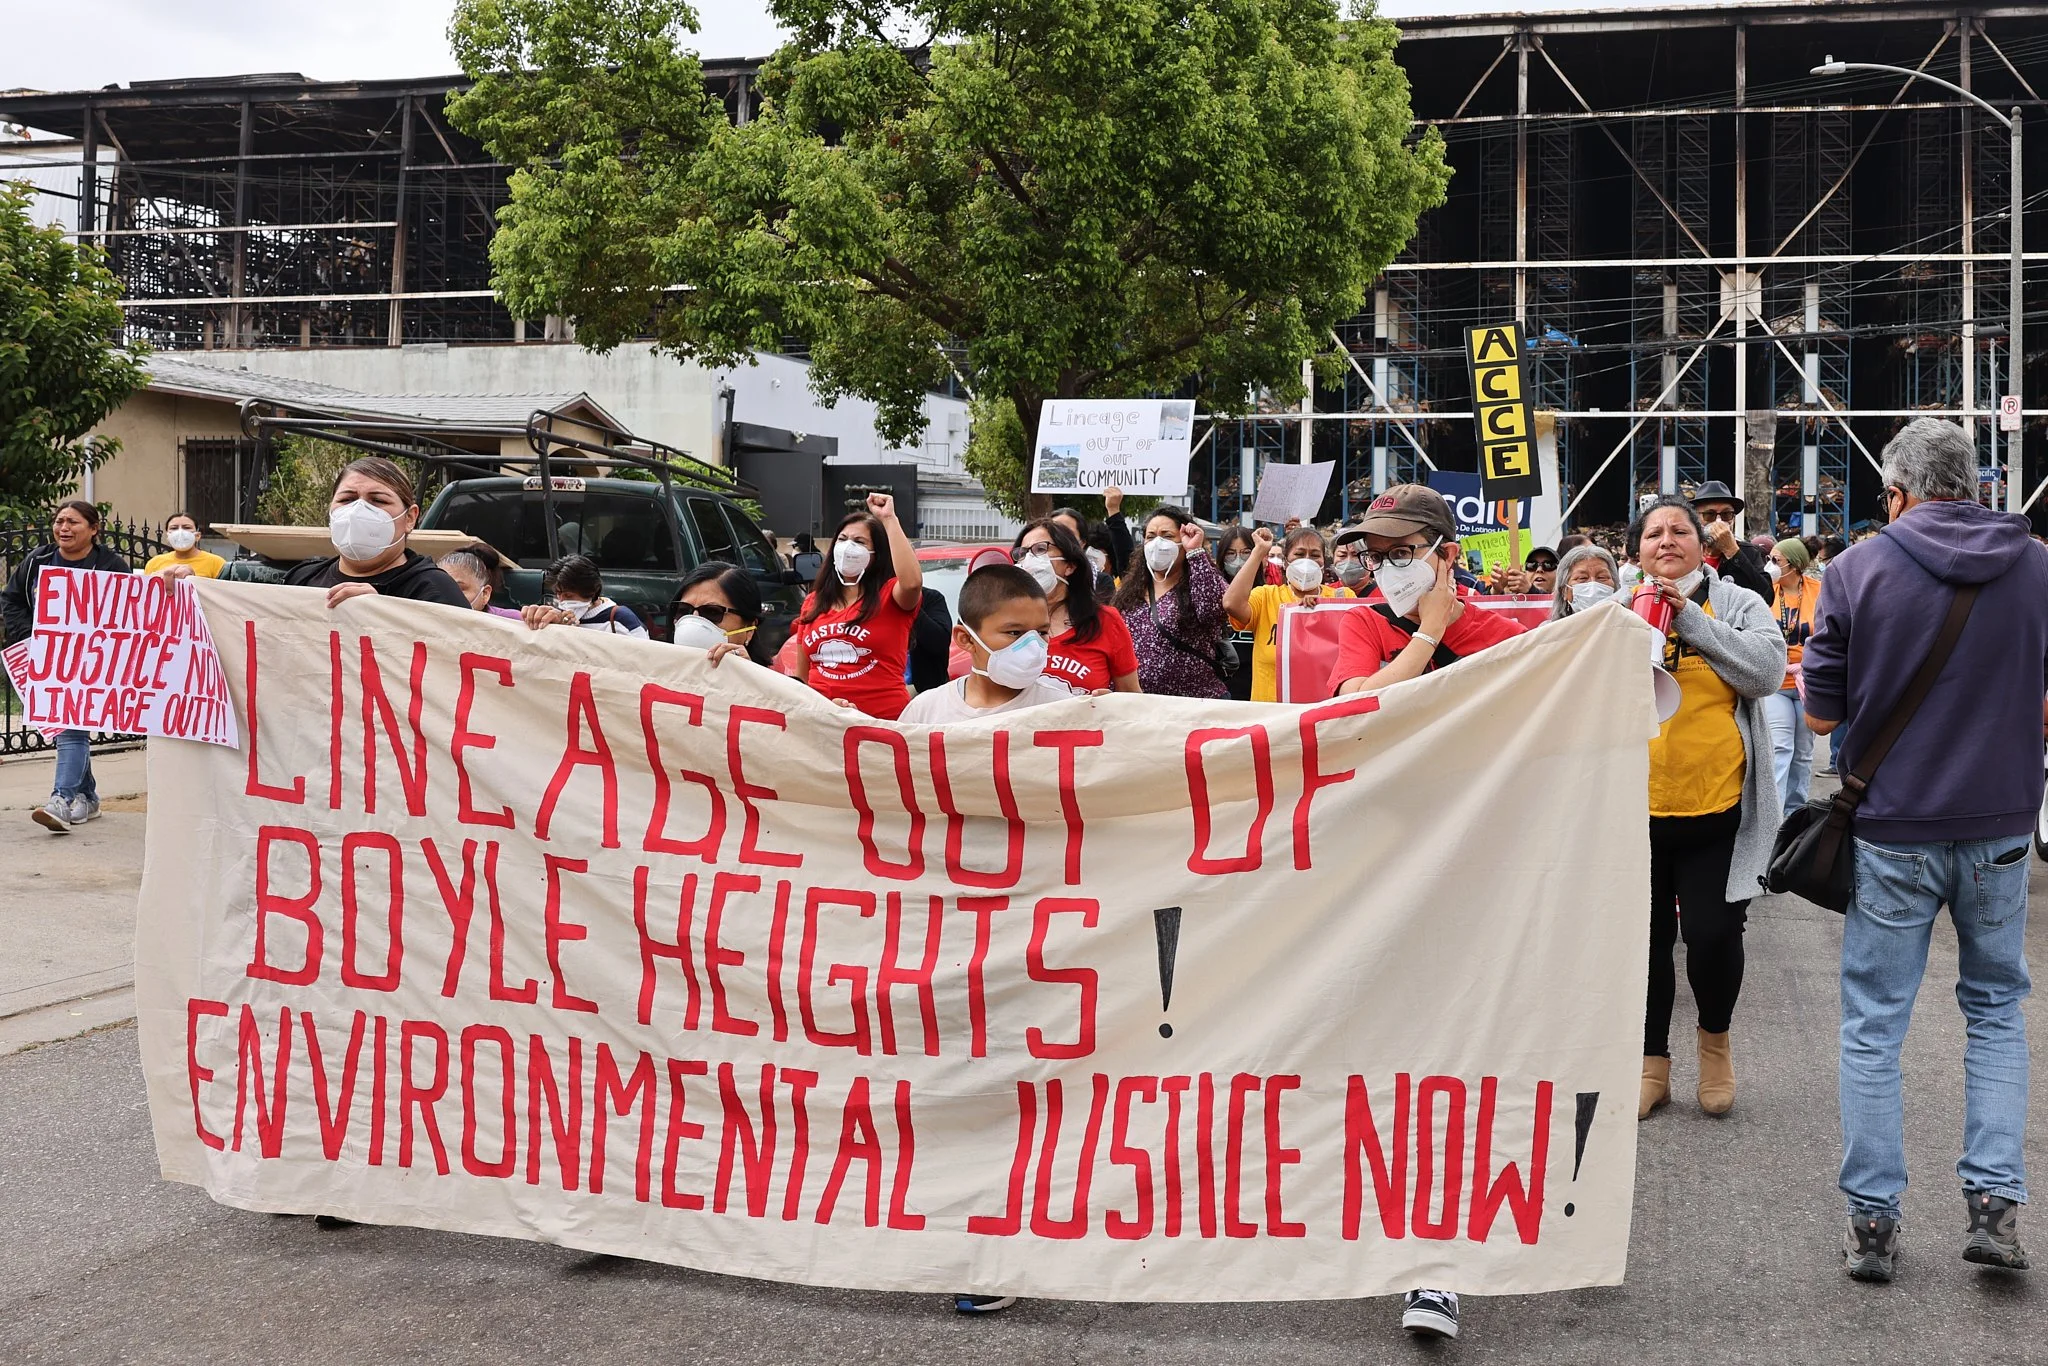 LINEAGE OUT OF
BOYLE HEIGHTS!
ENVIRONMENTAL JUSTICE NOW!
ENVIRONME
JUSTICE NOW
LINEAGE OUT!!!
Lineage
OUT OF
OUR
COMMUNITY
ACCE
EASTSIDE
CONTRA LA PRIVATIZACIÓN
SIDE
De Latinos